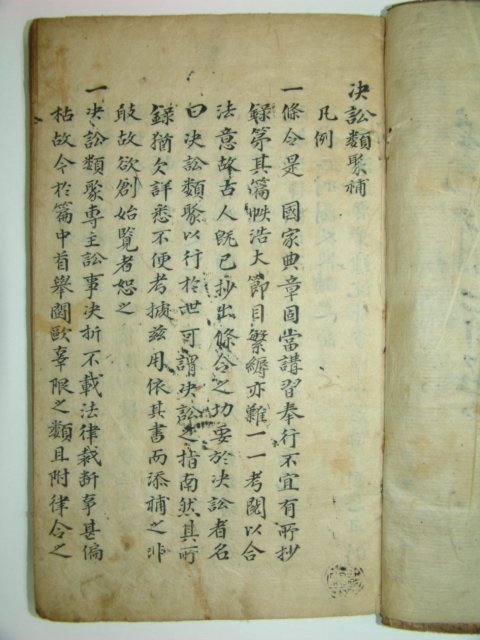 决訟類聚補
凡例
一條令是 國家典章固當講習奉行不宜有所抄
録第其篇帙浩大節目繁縟亦難一一考閱以合
法意故古人既已抄出條令之切要於决訟者名
曰决訟類聚以行於世可謂决訟之指南然其所
録猶欠詳悉不便考據玆用依其書而添補之非
敢故欲創始覽者恕之
一决訟類聚專主訟事决折不載法律裁斷事甚偏
枯故今於篇中首舉鬪毆辜限之類且附律令之